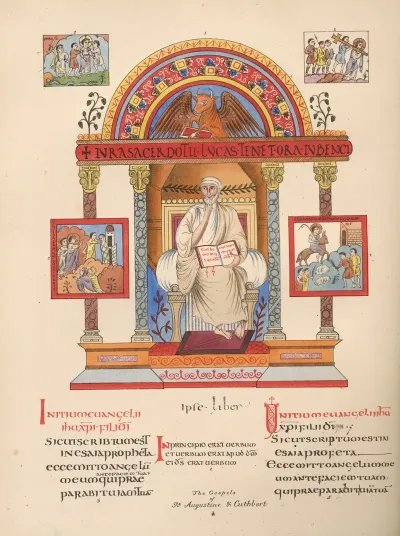 + IURASACERDOTII LUCAS TENET ORA IUBENCI
Ipse liber
INITIUM EUANGELII
IHUXPI FILII DI
SICUT SCRIBTUM EST
IN ESAIA PROPHETA
ECCE MITTO ANGELŪ
ANTEFACIEM TUAM
MEUM QUI PRAE
PARABIT UIAM TUAM
IN PRINCIPIO ERAT UERBUM
ET UERBUM ERAT APUD DM̄
ET DS̄ ERAT UERBUM
INITIUM EUANGELII IHU
XPI FILII DI
SICUT SCRIPTUM EST IN
ESAIA PROFETA
ECCE MITTO ANGELUM ME
UM ANTE FACIEM TUAM
QUI PRAEPARABIT UIAM TUAM
The Gospels
of
St Augustine & Cuthbert